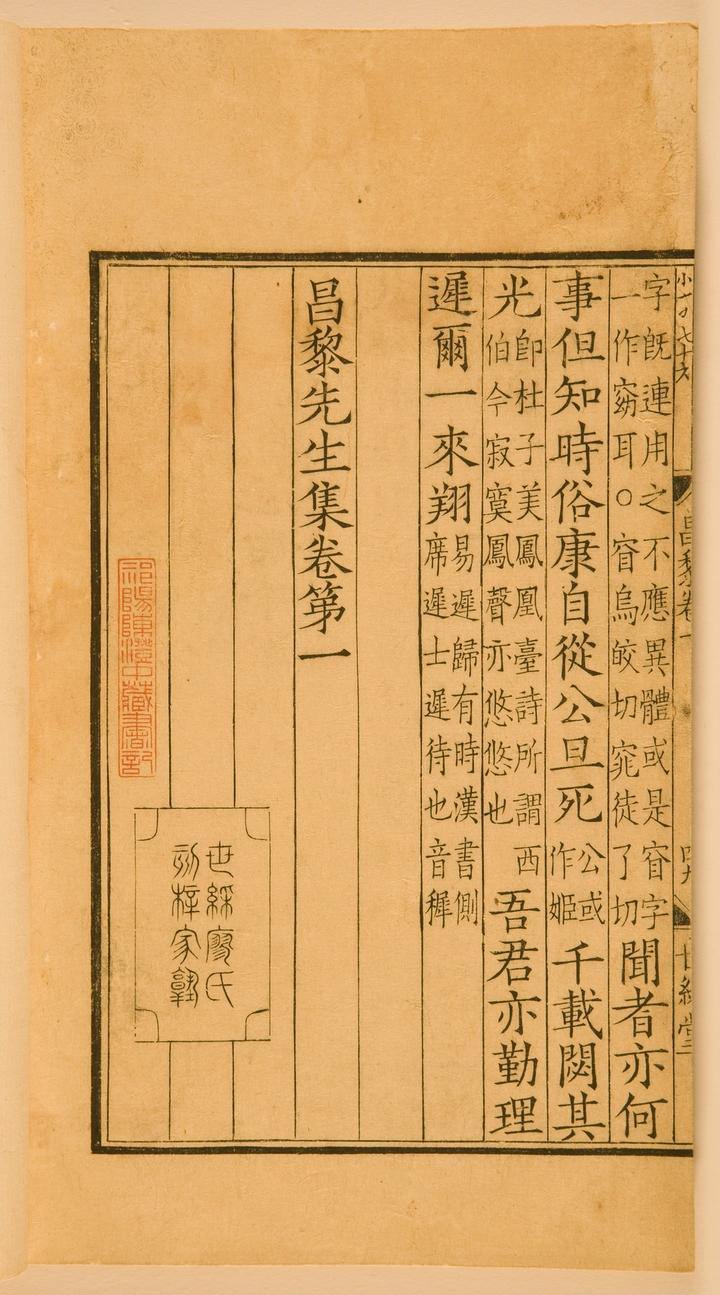 昌黎卷一
世綵堂
字既連用之不應異體或是窅字
一作窈耳○窅烏皎切窕徒了切
聞者亦何
事但知時俗康自從公旦死
公或
作姬
千載閟其
光
卽杜子美鳳凰臺詩所謂西
伯今寂寞鳳聲亦悠悠也
吾君亦勤理
遲爾一來翔
易遲歸有時漢書側
席遲士遲待也音穉
昌黎先生集卷第一
祁陽陳澄中藏書記
世綵廖氏
刻梓家塾